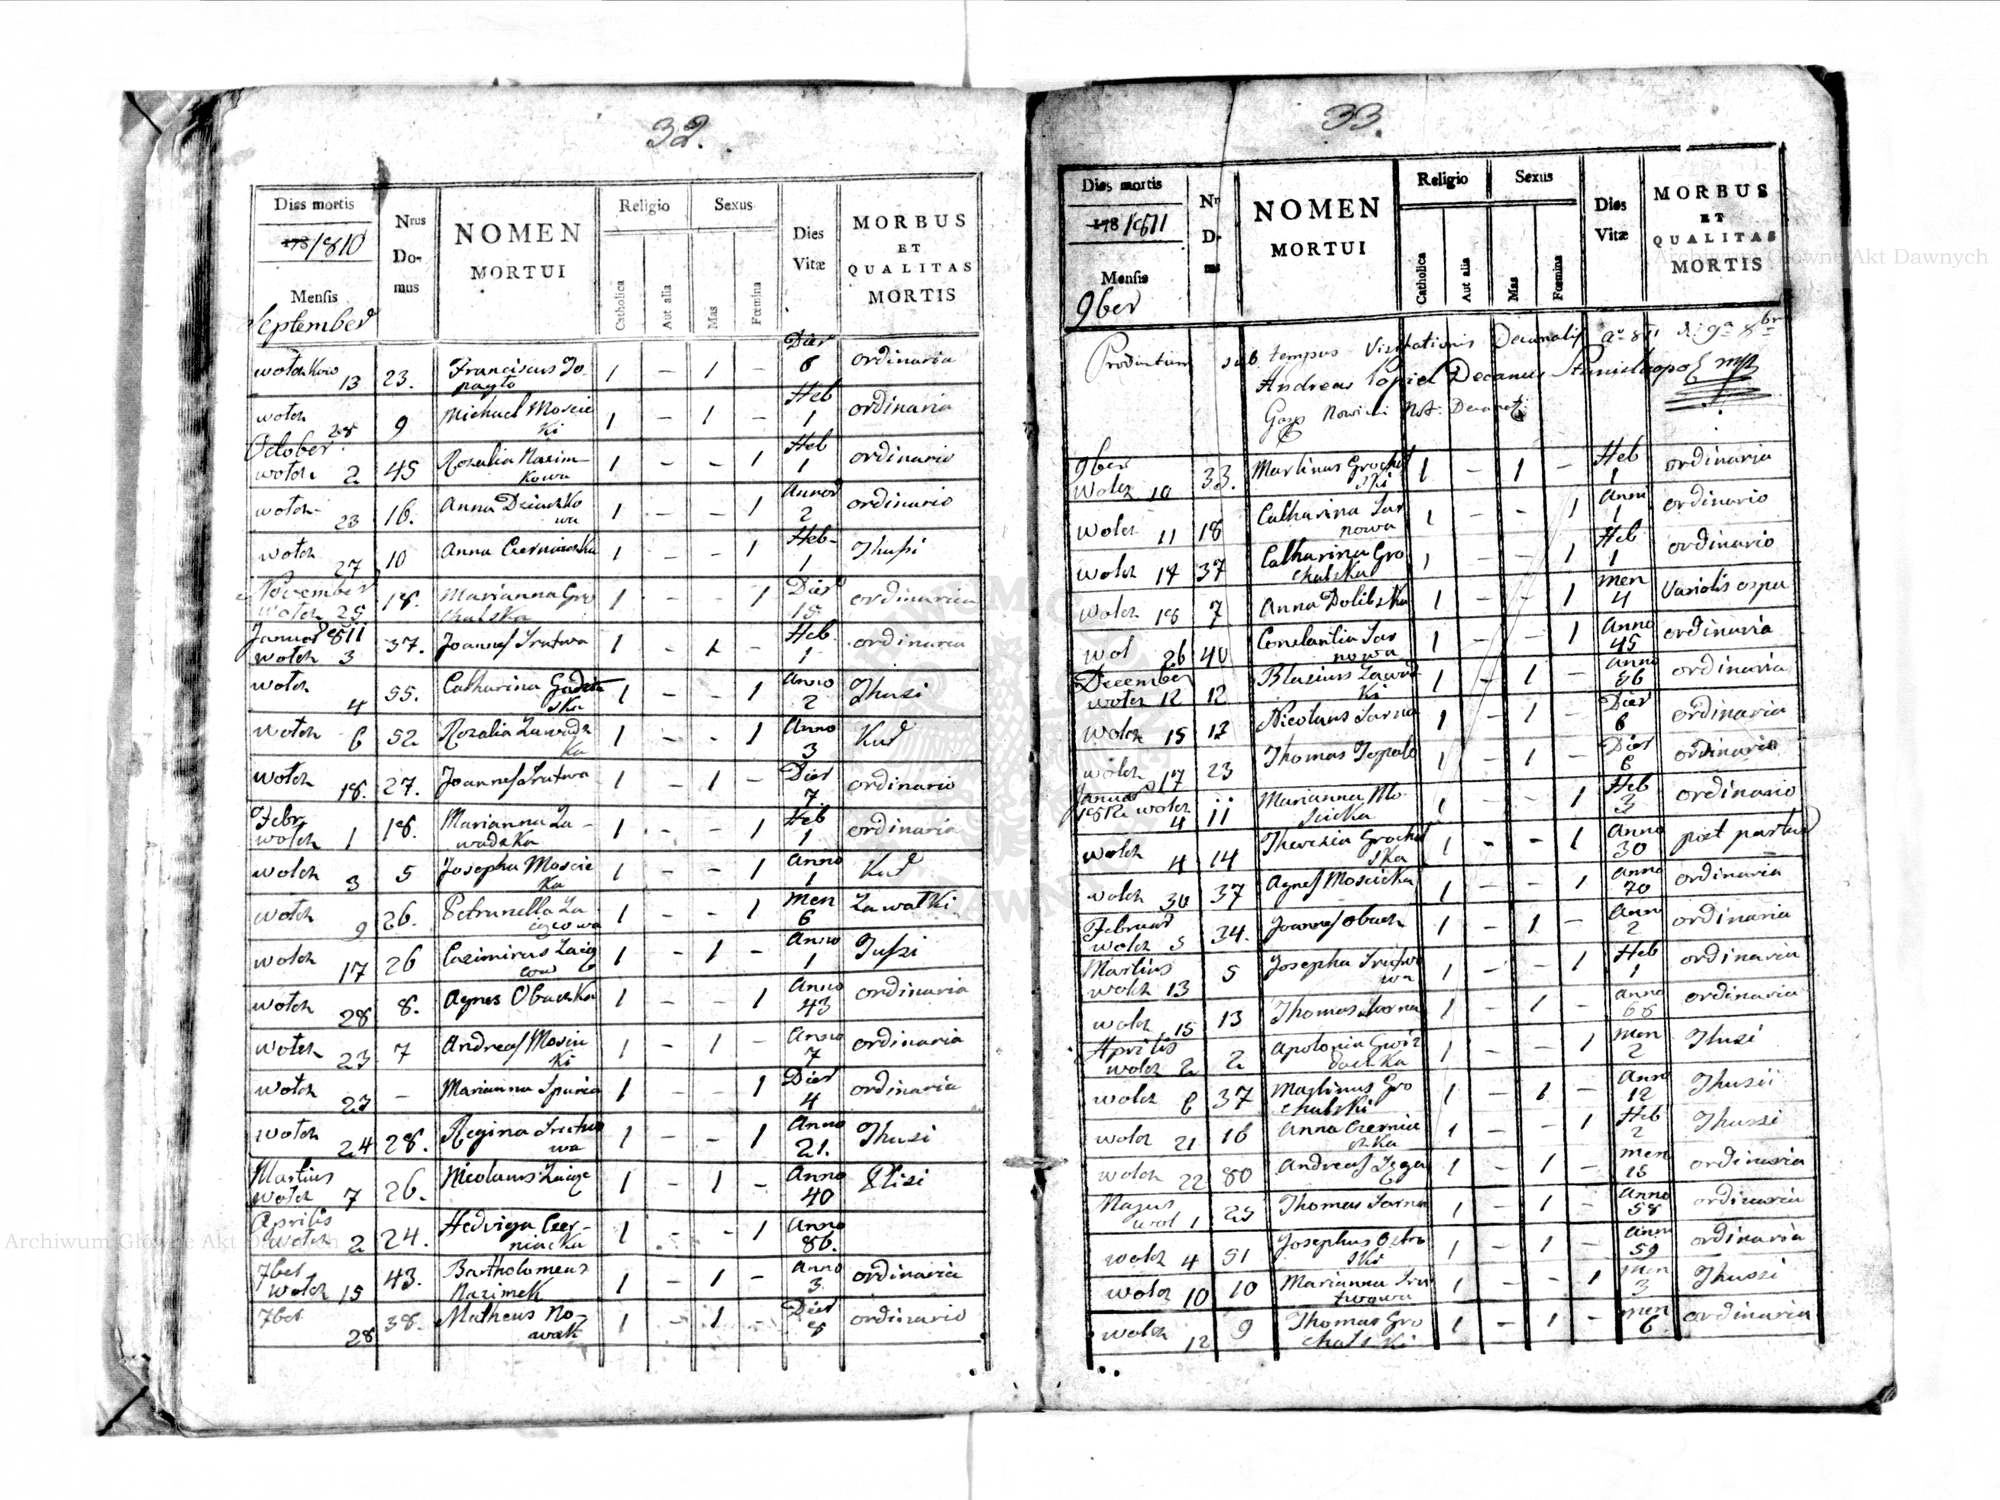 32.
Dies mortis
178/810
Mensis
September
Nrus
Do-
mus
NOMEN
MORTUI
Religio
Catholica
Aut alia
Sexus
Mas
Fœmina
Dies
Vitæ
MORBUS
ET
QUALITAS
MORTIS
13 23. Franciscus 1 – 1 – Dier 6 ordinaria
wolch 28 9 Michael Moscic
ki 1 – 1 – Heb 1 ordinaria
October
wolch 2 45 Rozalia Nazim-
kowa 1 – – 1 Heb 1 ordinario
wolch 23 16. Anna 1 – – 1 Annor 2 ordinario
wolch 27 10 Anna 1 – – 1 Heb 1
November
wolch 25 18. Marianna Gro
chalska 1 – – 1 Dier 15 ordinaria
Januar 811
wolch 3 37. Joannes Srutwa 1 – 1 – Heb 1 ordinaria
wolch 4 55. Catharina 1 – – 1 Anno 2 Thusi
wolch 6 52 Rozalia Zawadz
ka 1 – – 1 Anno 3 Kud
wolch 18. 27. Joannes Srutwa 1 – 1 – Dier 7 ordinario
Febr
wolch 1 18. Marianna Za-
wadzka 1 – – 1 Heb 1 ordinaria
wolch 3 5 Josepha Moscic
ka 1 – – 1 Anno 1 Kud
wolch 9 26. Petrunella 1 – – 1 Men 6 Zawalki
wolch 17 26 Casimirus 1 – 1 – Anno 1
wolch 28 8. Agnes Obaczka 1 – – 1 Anno 43 ordinaria
wolch 23 7 Andreas Moscic
ki 1 – 1 – Anno 7 ordinaria
wolch 23 – Marianna Spuria 1 – – 1 Dier 4 ordinaria
wolch 24 28. Regina Srutwo
wa 1 – – 1 Anno 21. Thusi
Martius
wolch 7 26. Nicolaus 1 – 1 – Anno 40
Aprilis
wolch 2 24. Hedviga Czer-
niacka 1 – – 1 Anno 86.
7ber
wolch 15 43. Bartholomeus
Nazimek 1 – 1 – Anno 3 ordinaria
7ber 28 38. Matheus No-
wak 1 – 1 – Dier 8 ordinario
33.
Dies mortis
178/811
Mensis
9ber
Nr
D-
mus
NOMEN
MORTUI
Religio
Catholica
Aut alia
Sexus
Mas
Fœmina
Dies
Vitæ
MORBUS
ET
QUALITAS
MORTIS
Productum sub tempus Visitationis Decanalis
Andreas Popiel Decanus
Nowicki Not.
9ber
Wolch 10 33. Martinus Grochal
ski 1 – 1 – Heb 1 ordinaria
Wolch 11 18 Catharina Sar
nowa 1 – – 1 Anni 1 ordinario
Wolch 14 37 Catharina Gro
chalska 1 – – 1 Heb 1 ordinario
Wolch 18 7 Anna Dolibska 1 – – 1 Men 4 Variolis ospa
Wol 26 40 Constantia Sar
nowa 1 – – 1 Anno 45 ordinaria
December
wolch 12 12 Blasius Zawadz
ki 1 – 1 – Anno 86 ordinaria
Wolch 15 13 Nicolaus Sarna 1 – 1 – Dier 6 ordinaria
wolch 17 23 Thomas 1 – 1 – Dier 6 ordinaria
Januar
1812 wolch 4 11 Marianna Mo
scicka 1 – – 1 Heb 3 ordinario
wolch 4 14 Theresia Grochal
ska 1 – – 1 Anno 30 post partus
wolch 30 37 Agnes Moscicka 1 – – 1 Anno 70 ordinaria
Februar
wolch 5 34. Joannes Obach 1 – 1 – Ann 2 ordinaria
Martius
wolch 13 5 Josepha Srutwo
wa 1 – – 1 Heb 1 ordinaria
wolch 15 13 Thomas Sarna 1 – 1 – Anno ordinaria
Aprilis
wolch 2 2 Apolonia 1 – – 1 Men 2 Thusi
wolch 6 37 Martinus Gro
chalski 1 – 1 – Anno 12 Thusii
wolch 21 16 Anna 1 – – 1 Heb 2 Thussi
wolch 22 80 Andreas 1 – 1 – Men 15 ordinaria
Majus
wol 1 25 Thomas Sarna 1 – 1 – Anno 58 ordinaria
wolch 4 51 Josephus Ostro
ski 1 – 1 – Ann 59 ordinaria
wolch 10 10 Marianna Sru
twowa 1 – – 1 Men 3 Thussi
wolch 12 9 Thomas Gro
chalski 1 – 1 – Men 6 ordinaria
Archiwum Główne Akt Dawnych
Archiwum Główne Akt Dawnych